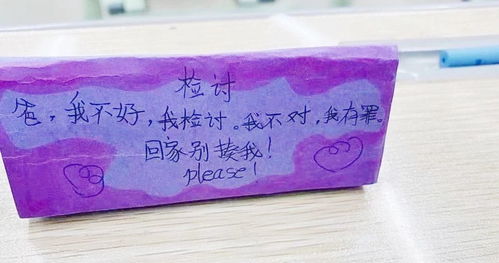 检讨
爸，我不好，我检讨。我不对，我有罪。
回家别揍我！
please！